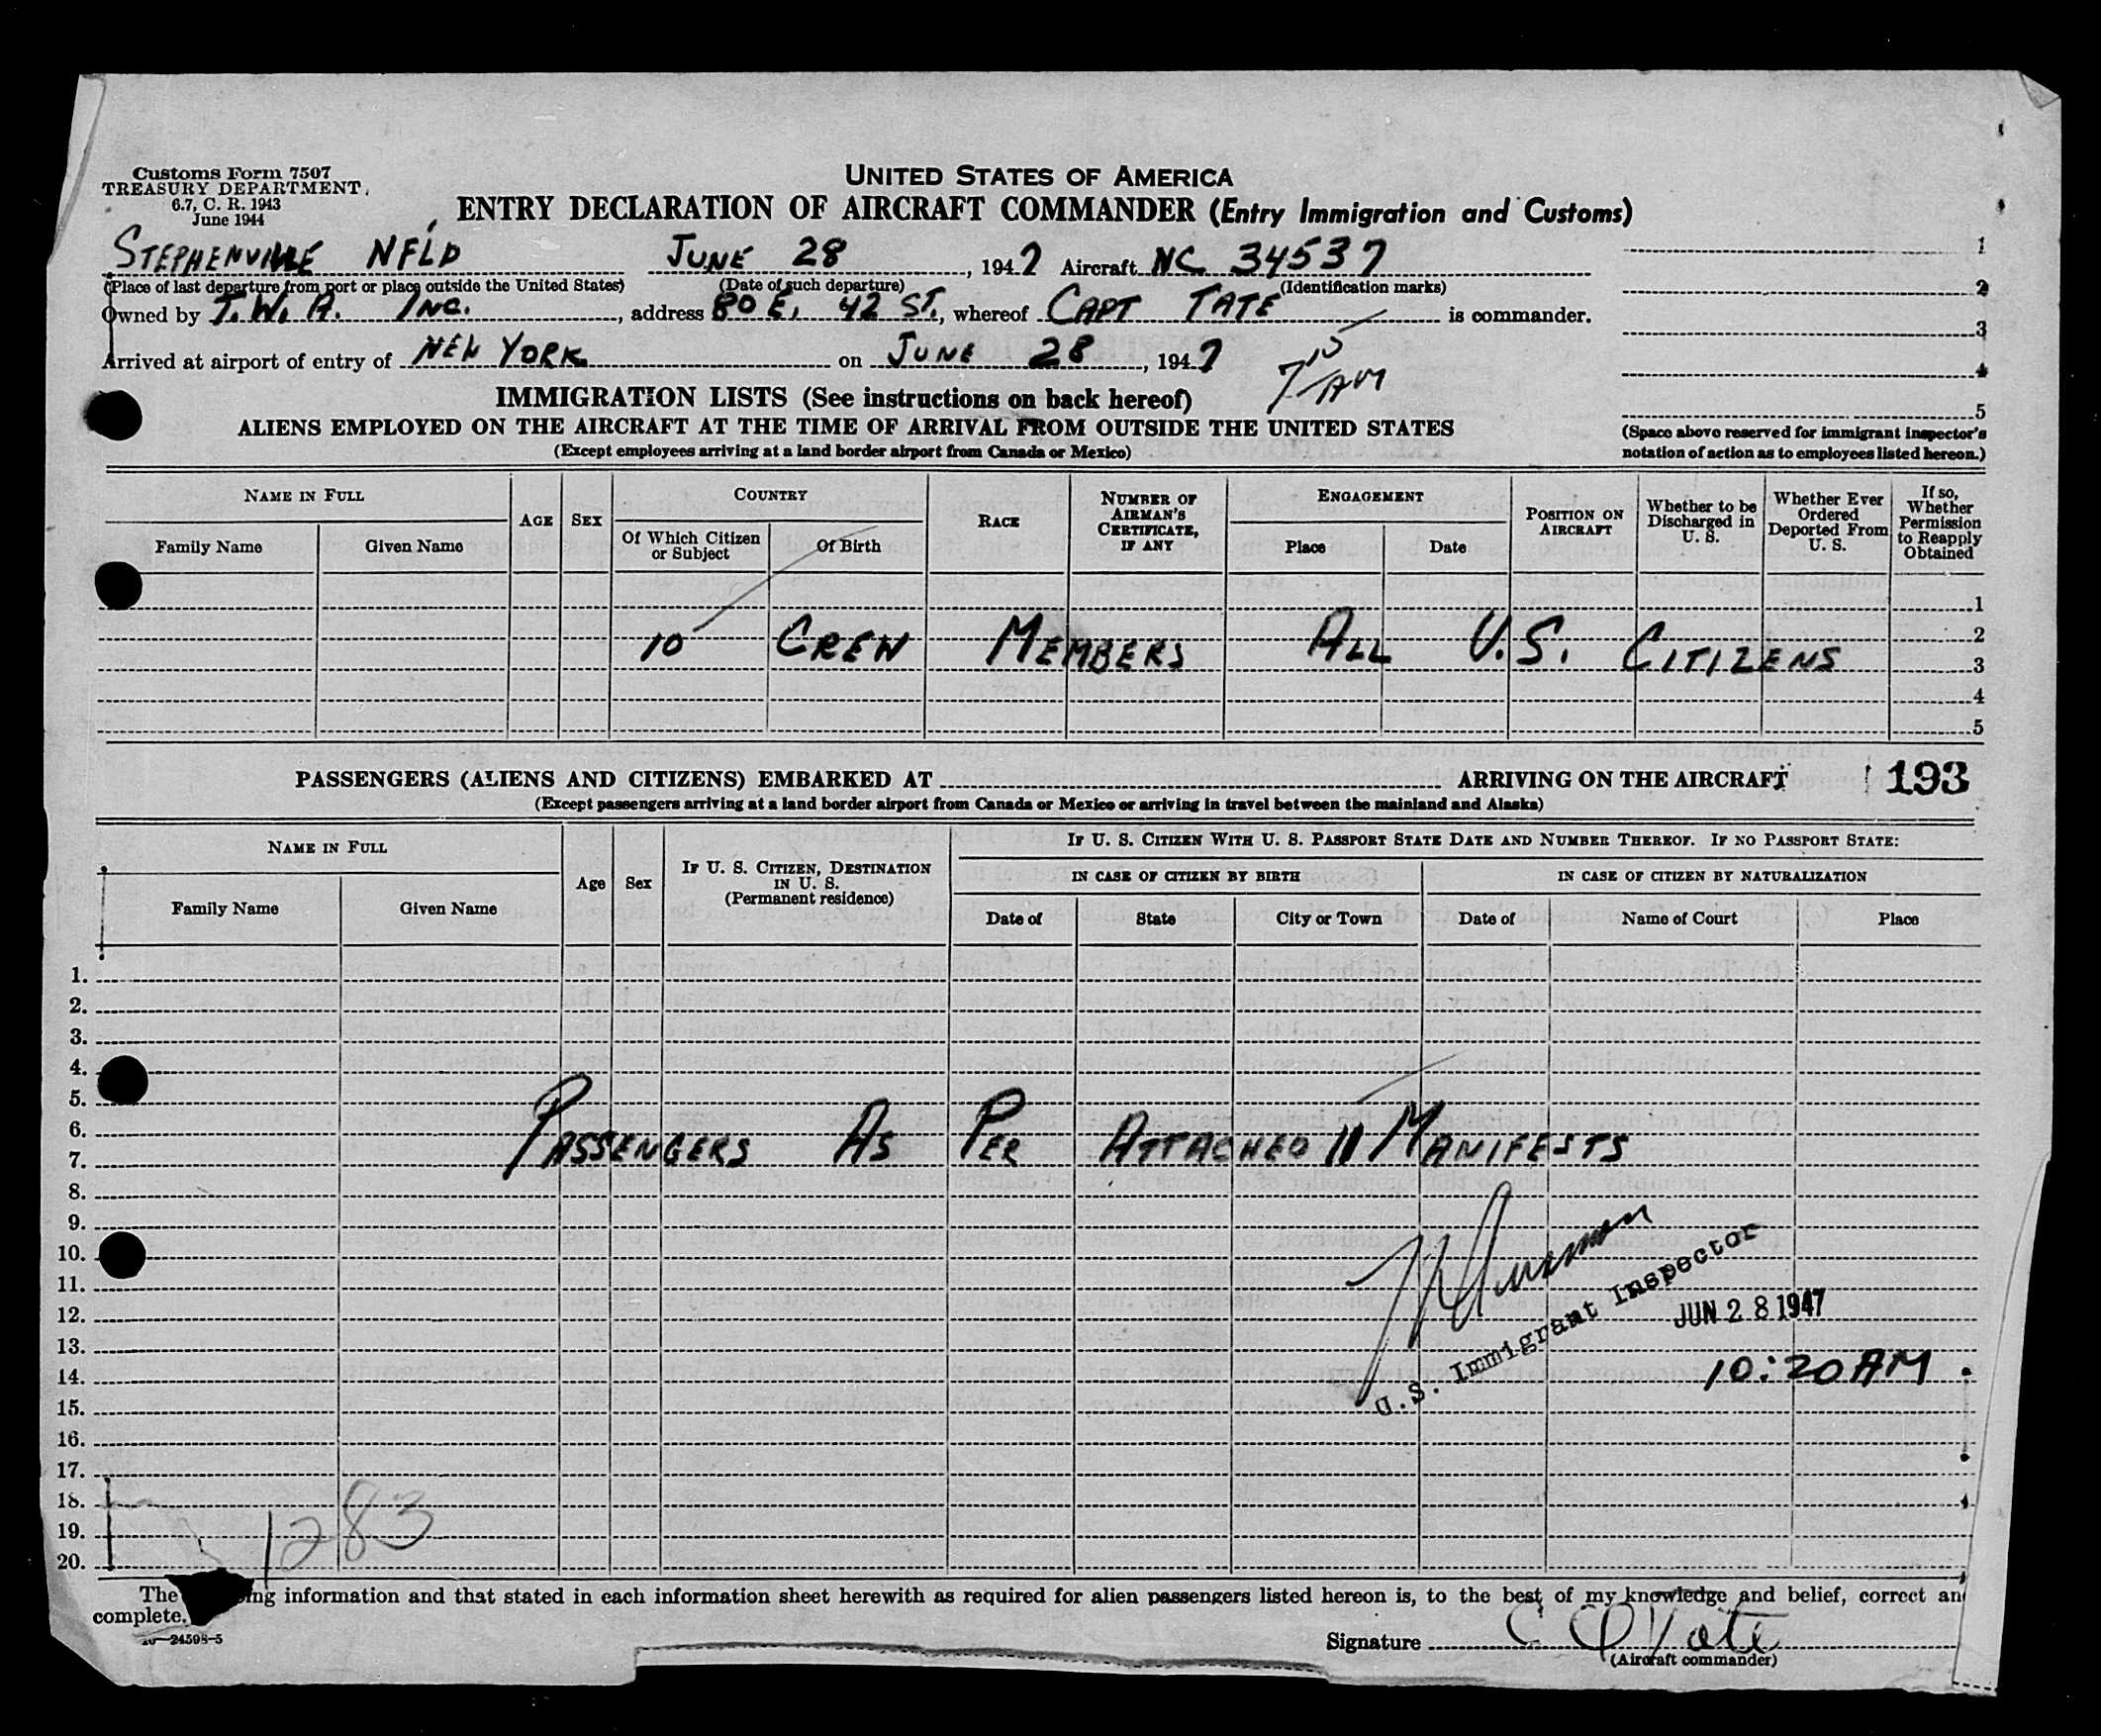 Customs Form 7507
TREASURY DEPARTMENT
6.7, C. R. 1943
June 1944
UNITED STATES OF AMERICA
ENTRY DECLARATION OF AIRCRAFT COMMANDER (Entry Immigration and Customs)
STEPHENVILLE NFLD JUNE 28, 1947 Aircraft NC 34537
(Place of last departure from port or place outside the United States) (Date of such departure) (Identification marks)
Owned by T.W.A. INC., address 80 E. 42 ST., whereof CAPT TATE is commander.
Arrived at airport of entry of NEW YORK on JUNE 28, 1947
7 15 AM
1
2
3
4
5
(Space above reserved for immigrant inspector's
notation of action as to employees listed hereon.)
IMMIGRATION LISTS (See instructions on back hereof)
ALIENS EMPLOYED ON THE AIRCRAFT AT THE TIME OF ARRIVAL FROM OUTSIDE THE UNITED STATES
(Except employees arriving at a land border airport from Canada or Mexico)
NAME IN FULL
Family Name
Given Name
AGE
SEX
COUNTRY
Of Which Citizen
or Subject
Of Birth
RACE
NUMBER OF
AIRMAN'S
CERTIFICATE,
IF ANY
ENGAGEMENT
Place
Date
POSITION ON
AIRCRAFT
Whether to be
Discharged in
U. S.
Whether Ever
Ordered
Deported From
U. S.
If so,
Whether
Permission
to Reapply
Obtained
1
2
10 CREW MEMBERS ALL U.S. CITIZENS
3
4
5
PASSENGERS (ALIENS AND CITIZENS) EMBARKED AT ARRIVING ON THE AIRCRAFT 193
(Except passengers arriving at a land border airport from Canada or Mexico or arriving in travel between the mainland and Alaska)
NAME IN FULL
Family Name
Given Name
Age
Sex
IF U. S. CITIZEN, DESTINATION
IN U. S.
(Permanent residence)
IF U. S. CITIZEN WITH U. S. PASSPORT STATE DATE AND NUMBER THEREOF. IF NO PASSPORT STATE:
IN CASE OF CITIZEN BY BIRTH
IN CASE OF CITIZEN BY NATURALIZATION
Date of
State
City or Town
Date of
Name of Court
Place
1.
2.
3.
4.
5.
6.
PASSENGERS AS PER ATTACHED 11 MANIFESTS
7.
8.
9.
10.
11.
U.S. Immigrant Inspector
JUN 28 1947
12.
13.
10:20 AM
14.
15.
16.
17.
18.
1283
19.
20.
The ing information and that stated in each information sheet herewith as required for alien passengers listed hereon is, to the best of my knowledge and belief, correct an
complete.
24598-5
Signature C Tate
(Aircraft commander)